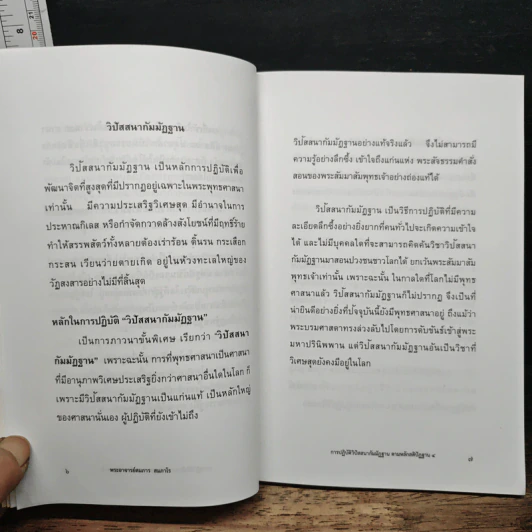 วิปัสสนากัมมัฏฐาน
วิปัสสนากัมมัฏฐาน เป็นหลักการปฏิบัติเพื่อ
พัฒนาจิตที่สูงสุดที่มีปรากฏอยู่เฉพาะในพระพุทธศาสนา
เท่านั้น มีความประเสริฐวิเศษสุด มีอำนาจในการ
ประหาณกิเลส หรือกำจัดกวาดล้างสังโยชน์ที่มีฤทธิ์ร้าย
ทำให้สรรพสัตว์ทั้งหลายต้องเร่าร้อน ดิ้นรน กระเสือก
กระสน เวียนว่ายตายเกิด อยู่ในห้วงทะเลใหญ่ของ
วัฏสงสารอย่างไม่มีที่สิ้นสุด
หลักในการปฏิบัติ "วิปัสสนากัมมัฏฐาน"
เป็นการภาวนาขั้นพิเศษ เรียกว่า "วิปัสสนา
กัมมัฏฐาน" เพราะฉะนั้น การที่พุทธศาสนาเป็นศาสนา
ที่มีอานุภาพวิเศษประเสริฐยิ่งกว่าศาสนาอื่นใดในโลก ก็
เพราะมีวิปัสสนากัมมัฏฐานเป็นแก่นแท้ เป็นหลักใหญ่
ของศาสนานั่นเอง ผู้ปฏิบัติที่ยังเข้าไม่ถึง
๖ พระอาจารย์สมภาร สมภาโร
วิปัสสนากัมมัฏฐานอย่างแท้จริงแล้ว จึงไม่สามารถมี
ความรู้อย่างลึกซึ้ง เข้าใจถึงแก่นแห่ง พระสัจธรรมคำสั่ง
สอนของพระสัมมาสัมพุทธเจ้าอย่างถ่องแท้ได้
วิปัสสนากัมมัฏฐาน เป็นวิธีการปฏิบัติที่มีความ
ละเอียดลึกซึ้งอย่างยิ่งยากที่คนทั่วไปจะเกิดความเข้าใจ
ได้ และไม่มีบุคคลใดที่จะสามารถคิดค้นวิชาวิปัสสนา
กัมมัฏฐานมาสอนปวงชนชาวโลกได้ ยกเว้นพระสัมมาสัม
พุทธเจ้าเท่านั้น เพราะฉะนั้น ในกาลใดที่โลกไม่มีพุทธ
ศาสนาแล้ว วิปัสสนากัมมัฏฐานก็ไม่ปรากฏ จึงเป็นที่
น่ายินดีอย่างยิ่งที่ปัจจุบันนี้ยังมีพุทธศาสนาอยู่ ถึงแม้ว่า
พระบรมศาสดาทรงล่วงลับไปโดยการดับขันธ์เข้าสู่พระ
มหาปรินิพพาน แต่วิปัสสนากัมมัฏฐานอันเป็นวิชาที่
วิเศษสุดยังคงมีอยู่ในโลก
การปฏิบัติวิปัสสนากัมมัฏฐาน ตามหลักสติปัฏฐาน ๔ ๗